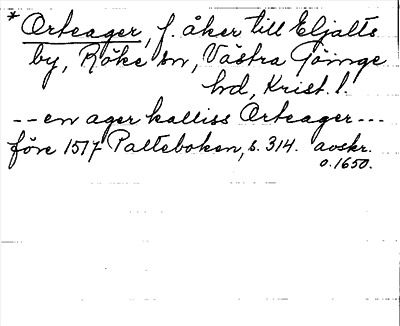 * Orteager, f. åker till Eljalts
by, Röke sn, Västra Göinge
hd, Krist. l.
-- en ager kalliss Orteager ---
före 1517 Palteboken, s. 314. avskr.
o. 1650.